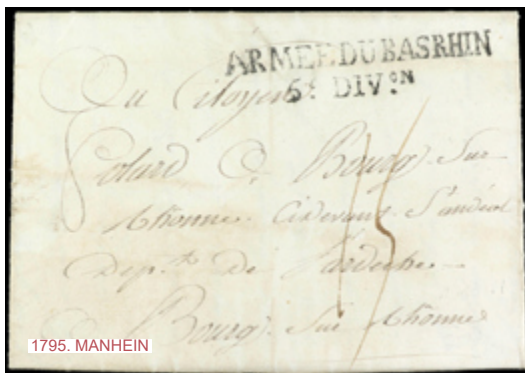 ARMEE DU BAS RHIN
6e DIV.ON
Au Citoyen
Bourg Sur
Rhonne Cidevant S'andéol
Dep.te De Lardeche
15
Bourg Sur Rhonne
1795. MANHEIN